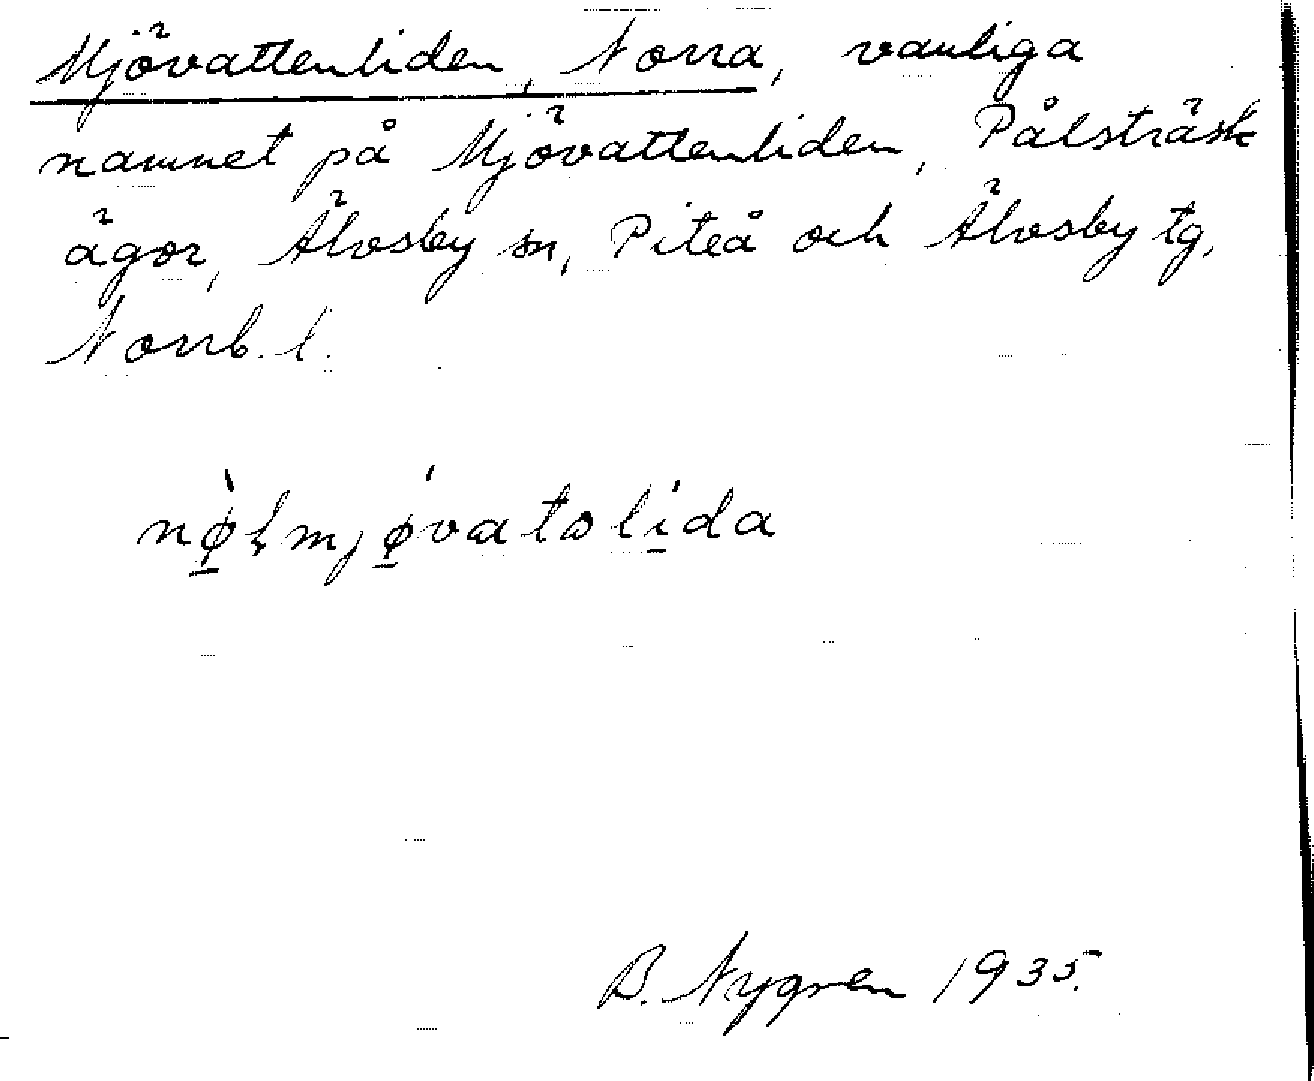 Mjövattenliden, Norra, vanliga
namnet på Mjövattenliden, Pålsträsk
ägor, Älvsby sn, Piteå och Älvsby tg,
Norrb. l.
nø̱̀ł mjǿ̱vatəlí̱da
B. Nygren 1935.